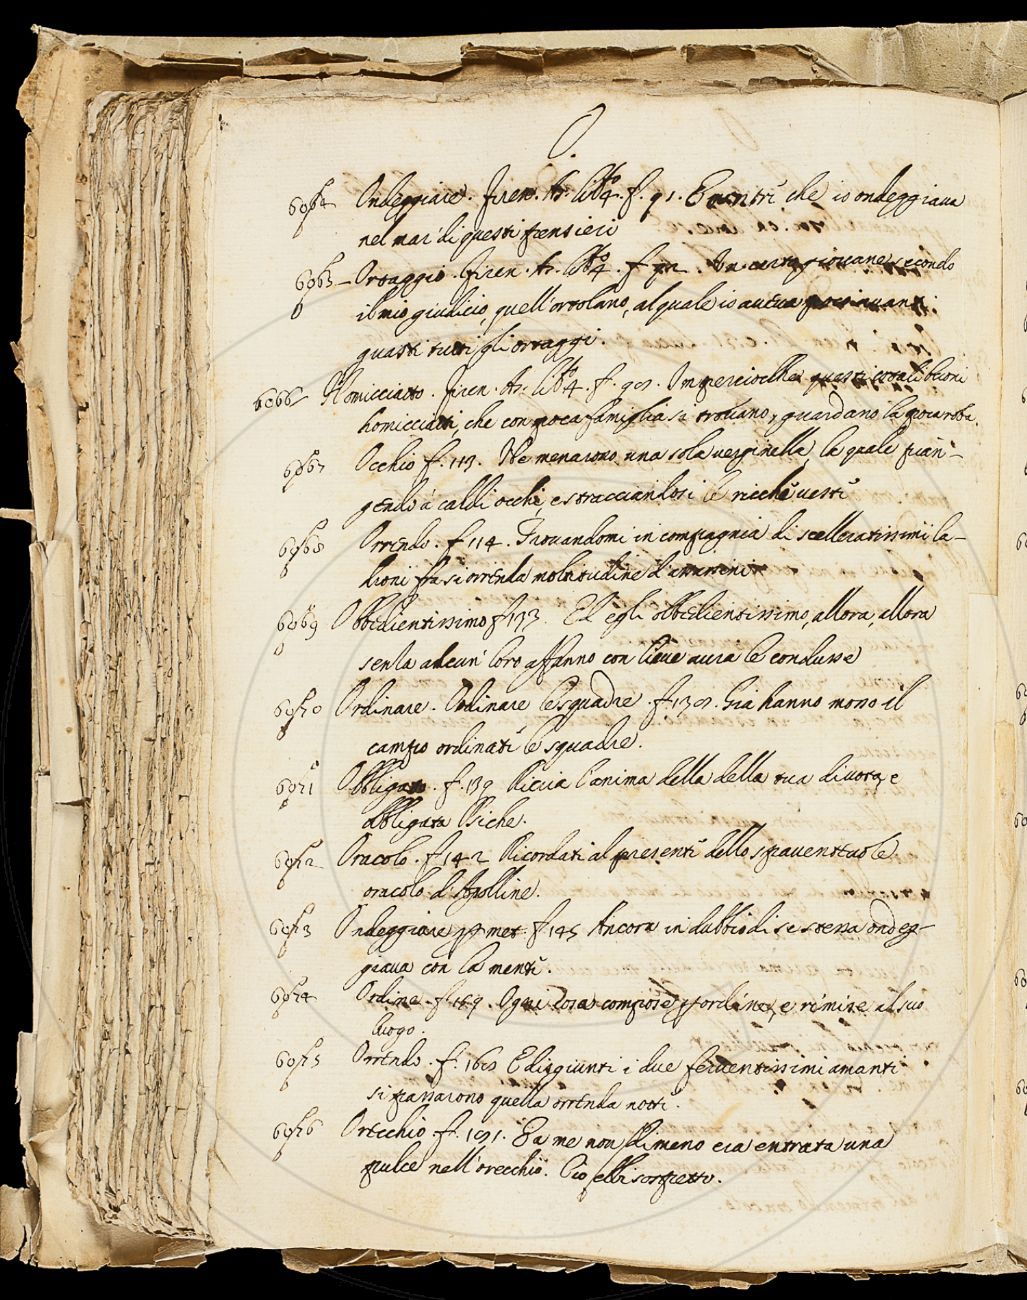 O.
6064 Ondeggiare. Firen. As. lib.o 4. f. 91. Mentre che io ondeggiava
nel mar di questi pensieri
6065 Ortaggio. Firen. As. lib.o 4. f. giovane, secondo
il mio giudicio, quell'ortolano, al quale io aveva poco innanzi
guasti tutti gli ortaggi.
6066 Homicciatto. Firen. As. lib.o 4. f. Impercioche questi cotali buoni
homicciatti, che con poca famiglia si trovano, guardano la poca roba.
6067 Occhio f. 113. Ne menarono una sola verginella, la quale pian-
gendo a' caldi occhi, e stracciandosi le ricche vesti
6068 Orrendo. f. 114. Trovandomi in compagnia di scelleratissimi la-
droni fra si orrenda moltitudine d'
6069 Obbedientissimo f. 133. Ed egli obbedientissimo, allora, allora
senza alcun loro affanno con lieve aura le condusse
6070 Ordinare. Ordinare le squadre f. 130. Gia hanno mosso il
campo ordinate le squadre.
6071 Obbligato. f. 139 Ricria l'anima della della tua divota, e
obbligata Psiche.
6072 Oracolo. f. 142 Ricordati al presente dello spaventevole
oracolo d'Apolline.
6073 Ondeggiare p met. f. 145 Ancora in dubbio di se stessa ondeg-
giava con la mente.
6074 Ordine. f. 159. Ogni cosa compose p ordine, e rimise al suo
luogo.
6075 Orrendo. f. 160 E disgiunti i due ferventissimi amanti
si passarono quella orrenda notte.
6076 Orecchio. f. 191. Ea me non dimeno era entrata una
pulce nell'orecchio. Cio ebbi sospetto.